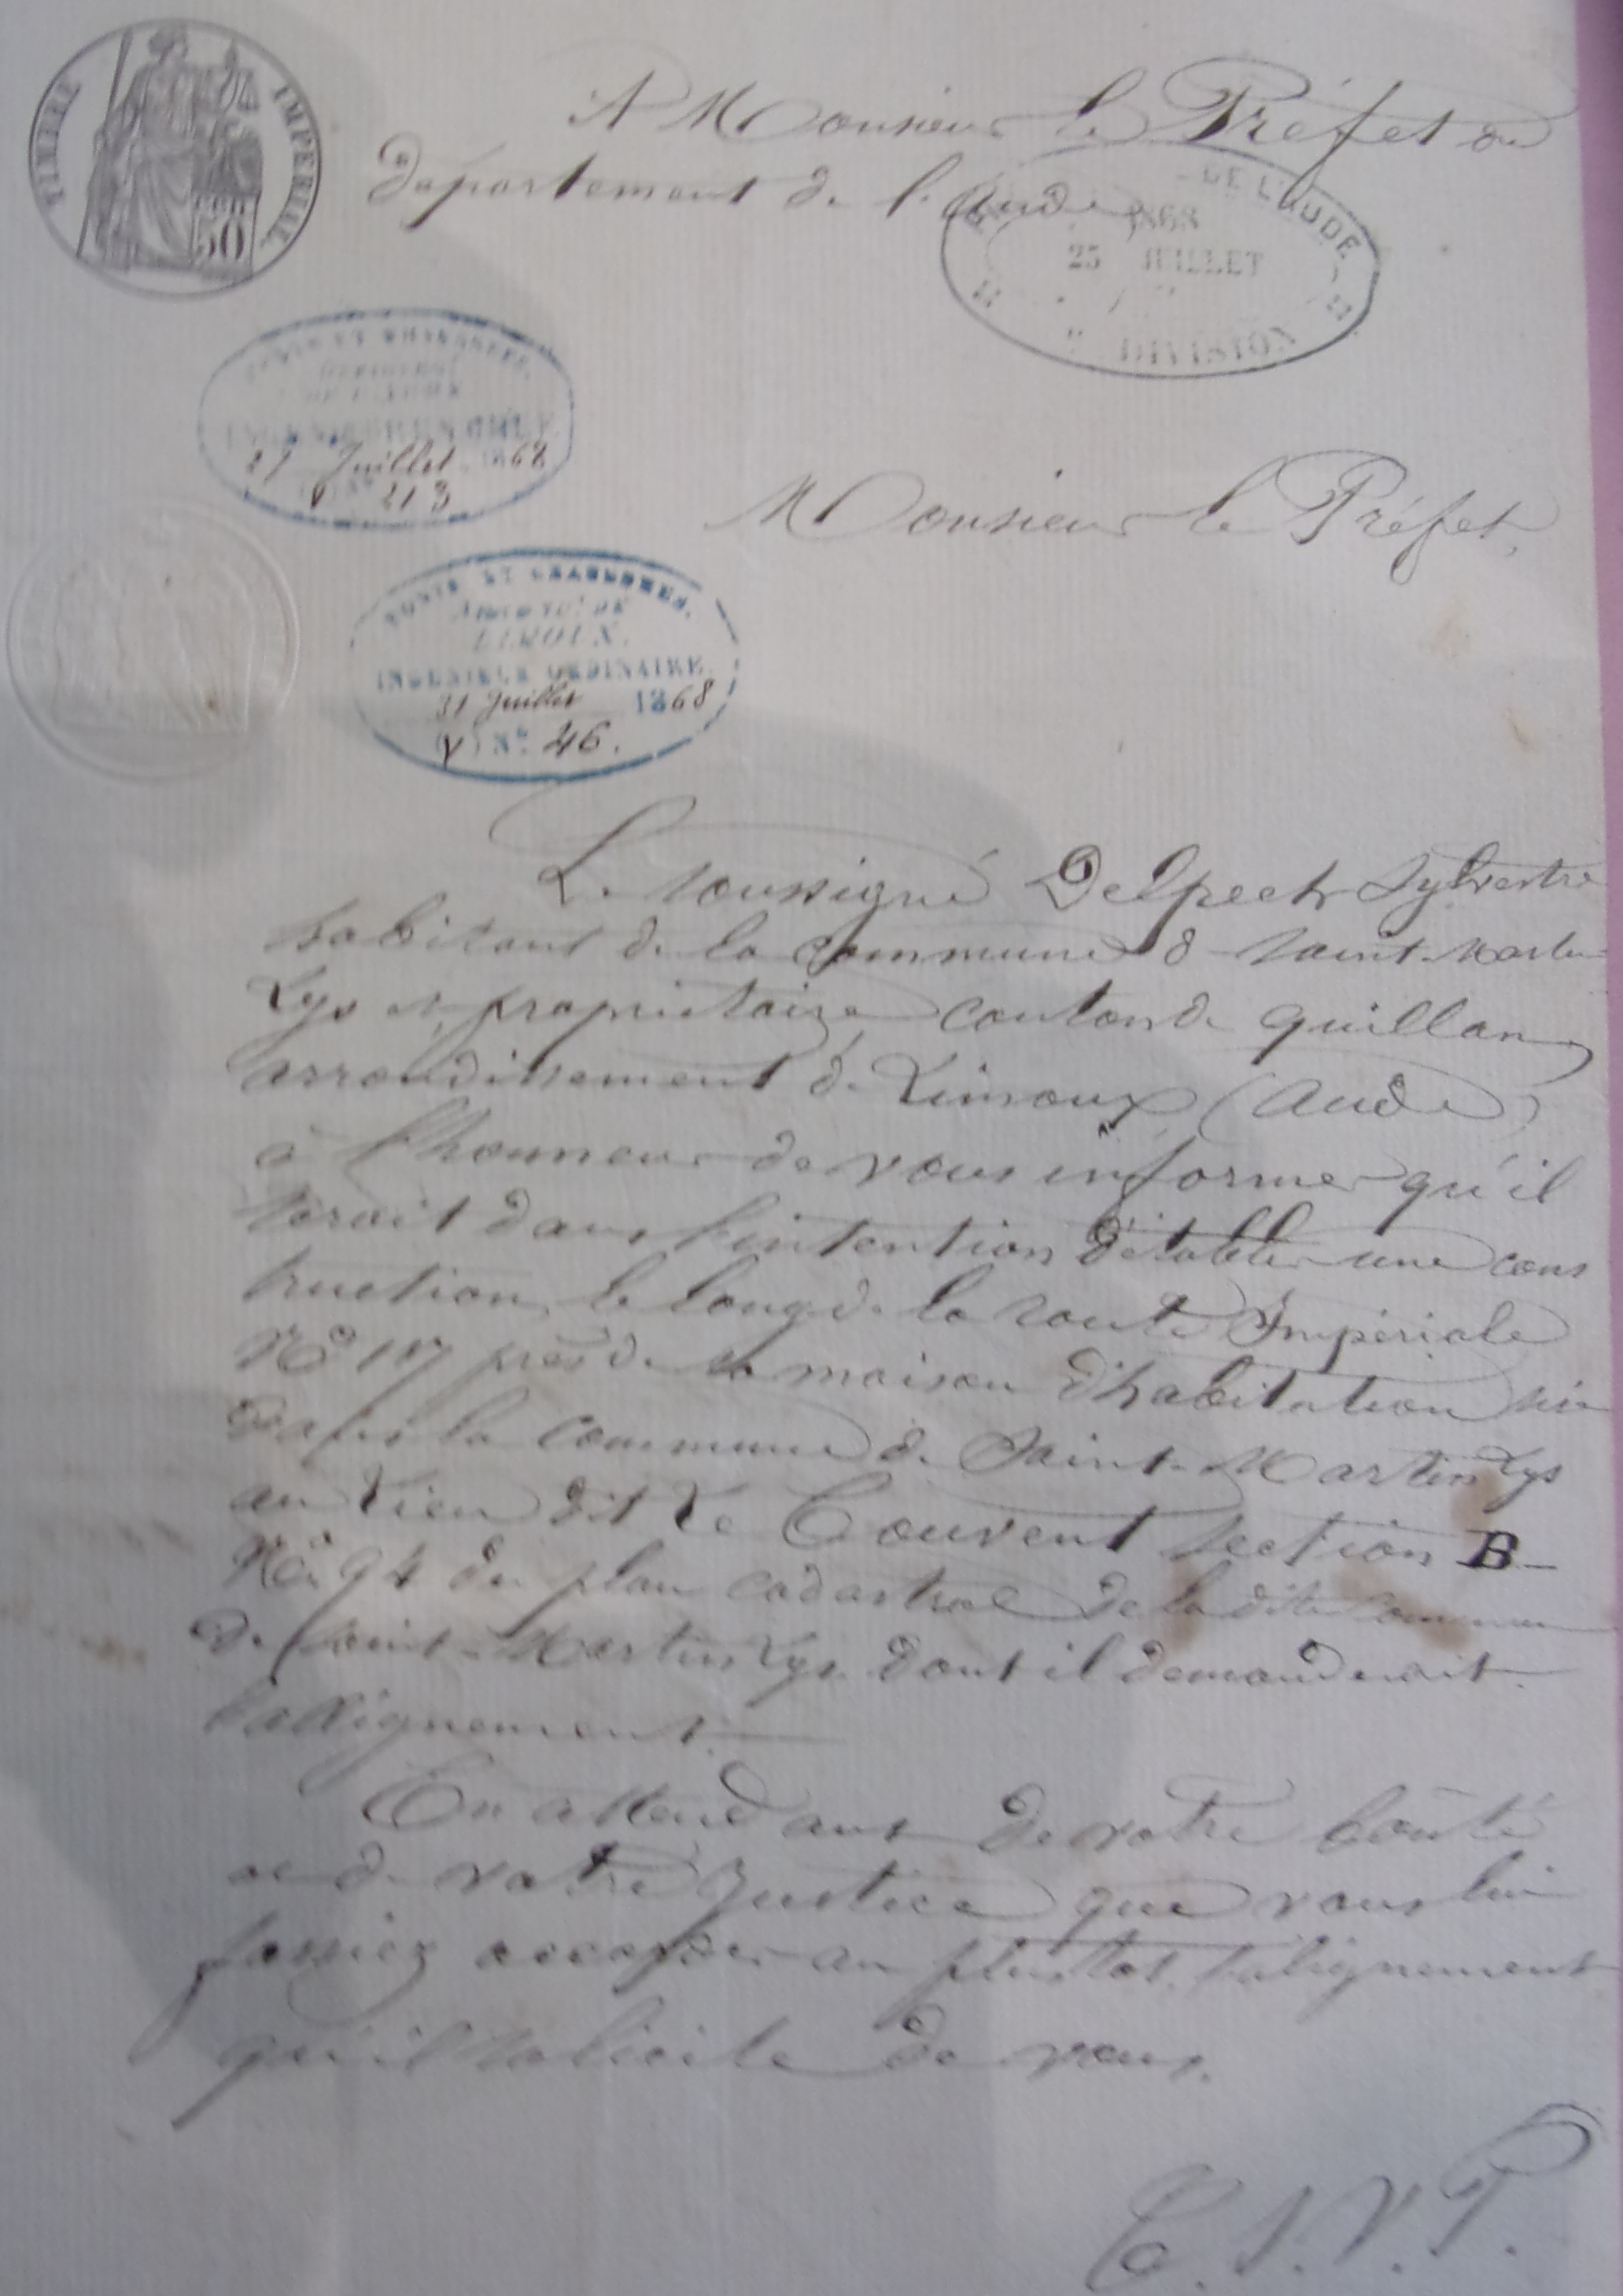 TIMBRE IMPERIAL
50
A Monsieur le Préfet du
département de l'Aude
DE L'AUDE
1868
25 JUILLET
DIVISION
PONTS ET CHAUSSÉES.
DE L'AUDE
INGÉNIEUR EN CHEF
27 Juillet 1868
213
Monsieur le Préfet,
PONTS ET CHAUSSÉES.
ARRONDt DE
LIMOUX.
INGÉNIEUR ORDINAIRE
31 Juillet 1868
(V) No 46.
Le soussigné Delpech Sylvestre
habitant de la commune de Saint-Martin
Lys et propriétaire canton de Quillan,
arrondissement de Limoux (Aude)
à l'honneur de vous informer qu'il
serait dans l'intention d'établir une cons
truction le long de la route Impériale
No 117 près de sa maison d'habitation sise
dans la commune de Saint-Martin Lys
au Lieu dit Le Couvent section B
No 94 du plan cadastral de la dite commune
de Saint-Martin Lys dont il demanderait
l'allignement.
En attendant de votre bonté
et de votre Justice que vous lui
fassiez accorder au plustot l'alignement
qu'il solicite de vous.
T.S.V.P.